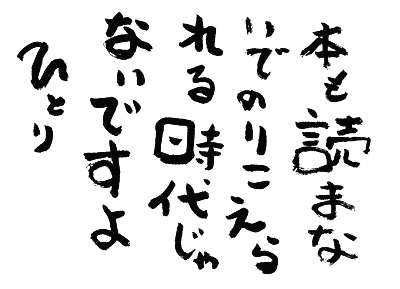 本も読まな
いでのりこえら
れる時代じゃ
ないですよ
ひとり